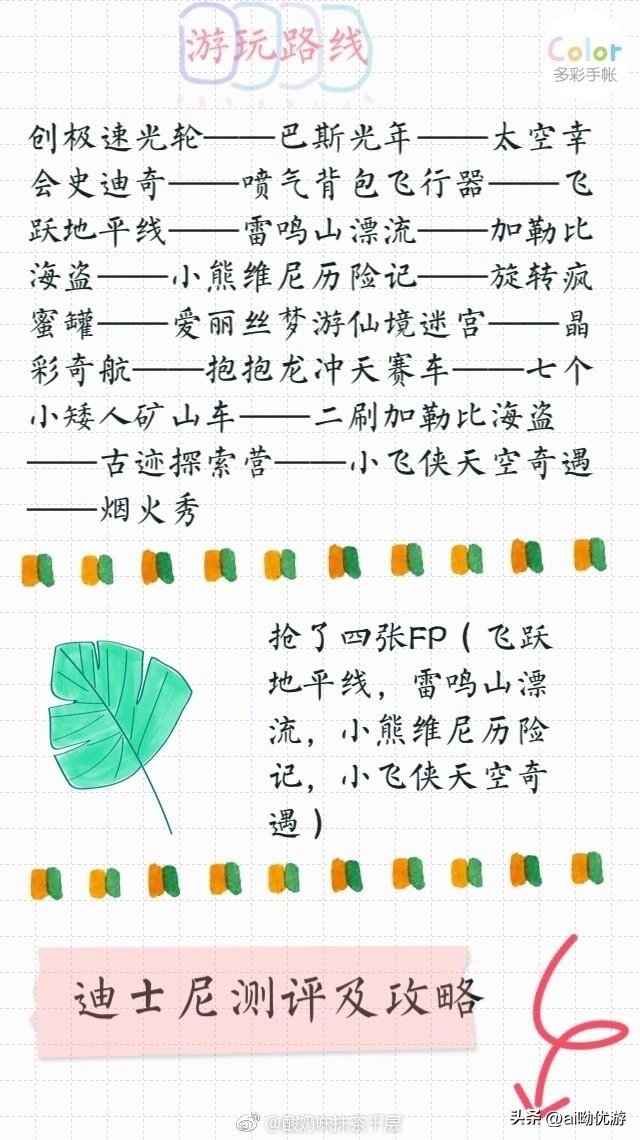 游玩路线
Color
多彩手帐
创极速光轮——巴斯光年——太空幸
会史迪奇——喷气背包飞行器——飞
跃地平线——雷鸣山漂流——加勒比
海盗——小熊维尼历险记——旋转疯
蜜罐——爱丽丝梦游仙境迷宫——晶
彩奇航——抱抱龙冲天赛车——七个
小矮人矿山车——二刷加勒比海盗
——古迹探索营——小飞侠天空奇遇
——烟火秀
抢了四张FP（飞跃
地平线，雷鸣山漂
流，小熊维尼历险
记，小飞侠天空奇
遇）
迪士尼测评及攻略
@酸奶味抹茶千层
头条 @ai呦优游